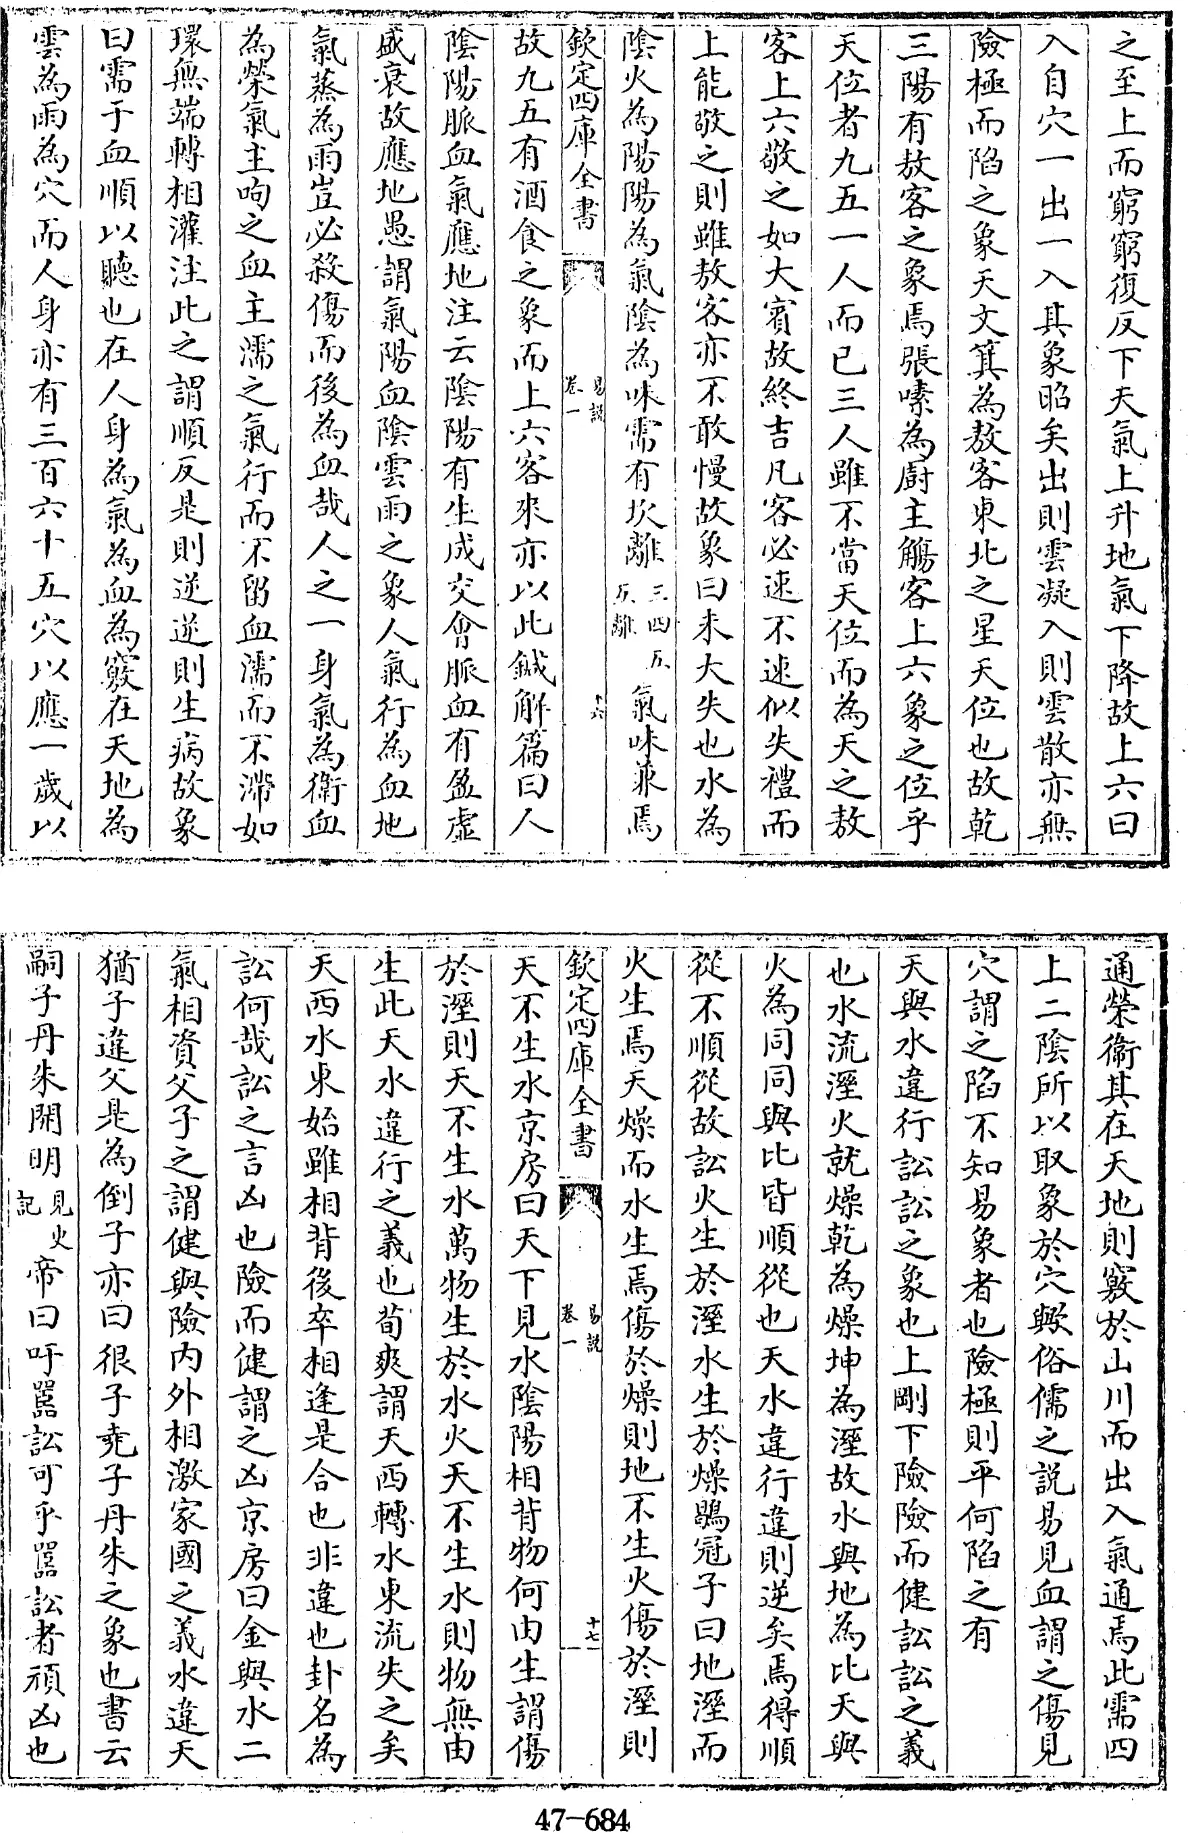 之至上而窮窮復反下天氣上升地氣下降故上六曰
入自穴一出一入其象昭矣出則雲凝入則雲散亦無
險極而陷之象天文箕為敖客東北之星天位也故乾
三陽有敖客之象焉張嗉為廚主觴客上六象之位乎
天位者九五一人而已三人雖不當天位而為天之敖
客上六敬之如大賓故終吉凡客必速不速似失禮而
上能敬之則雖敖客亦不敢慢故象曰未大失也水為
陰火為陽陽為氣陰為味需有坎離三四五互離氣味兼焉
欽定四庫全書
易說
卷一
十六
故九五有酒食之象而上六客來亦以此鍼解篇曰人
陰陽脈血氣應地注云陰陽有生成交會脈血有盈虛
盛衰故應地愚謂氣陽血陰雲雨之象人氣行為血地
氣蒸為雨豈必殺傷而後為血哉人之一身氣為衛血
為榮氣主呴之血主濡之氣行而不留血濡而不滯如
環無端轉相灌注此之謂順反是則逆逆則生病故象
曰需于血順以聽也在人身為氣為血為竅在天地為
雲為雨為穴而人身亦有三百六十五穴以應一歲以
通榮衞其在天地則竅於山川而出入氣通焉此需四
上二陰所以取象於穴歟俗儒之説易見血謂之傷見
穴謂之陷不知易象者也險極則平何陷之有
天與水違行訟訟之象也上剛下險險而健訟訟之義
也水流溼火就燥乾為燥坤為溼故水與地為比天與
火為同同與比皆順從也天水違行違則逆矣焉得順
從不順從故訟火生於溼水生於燥鶡冠子曰地溼而
火生焉天燥而水生焉傷於燥則地不生火傷於溼則
欽定四庫全書
易說
卷一
十七
天不生水京房曰天下見水陰陽相背物何由生謂傷
於溼則天不生水萬物生於水火天不生水則物無由
生此天水違行之義也荀爽謂天西轉水東流失之矣
天西水東始雖相背後卒相逢是合也非違也卦名為
訟何哉訟之言凶也險而健謂之凶京房曰金與水二
氣相資父子之謂健與險內外相激家國之義水違天
猶子違父是為倒子亦曰很子堯子丹朱之象也書云
嗣子丹朱開明見史記帝曰吁嚚訟可乎嚚訟者頑凶也
47-684